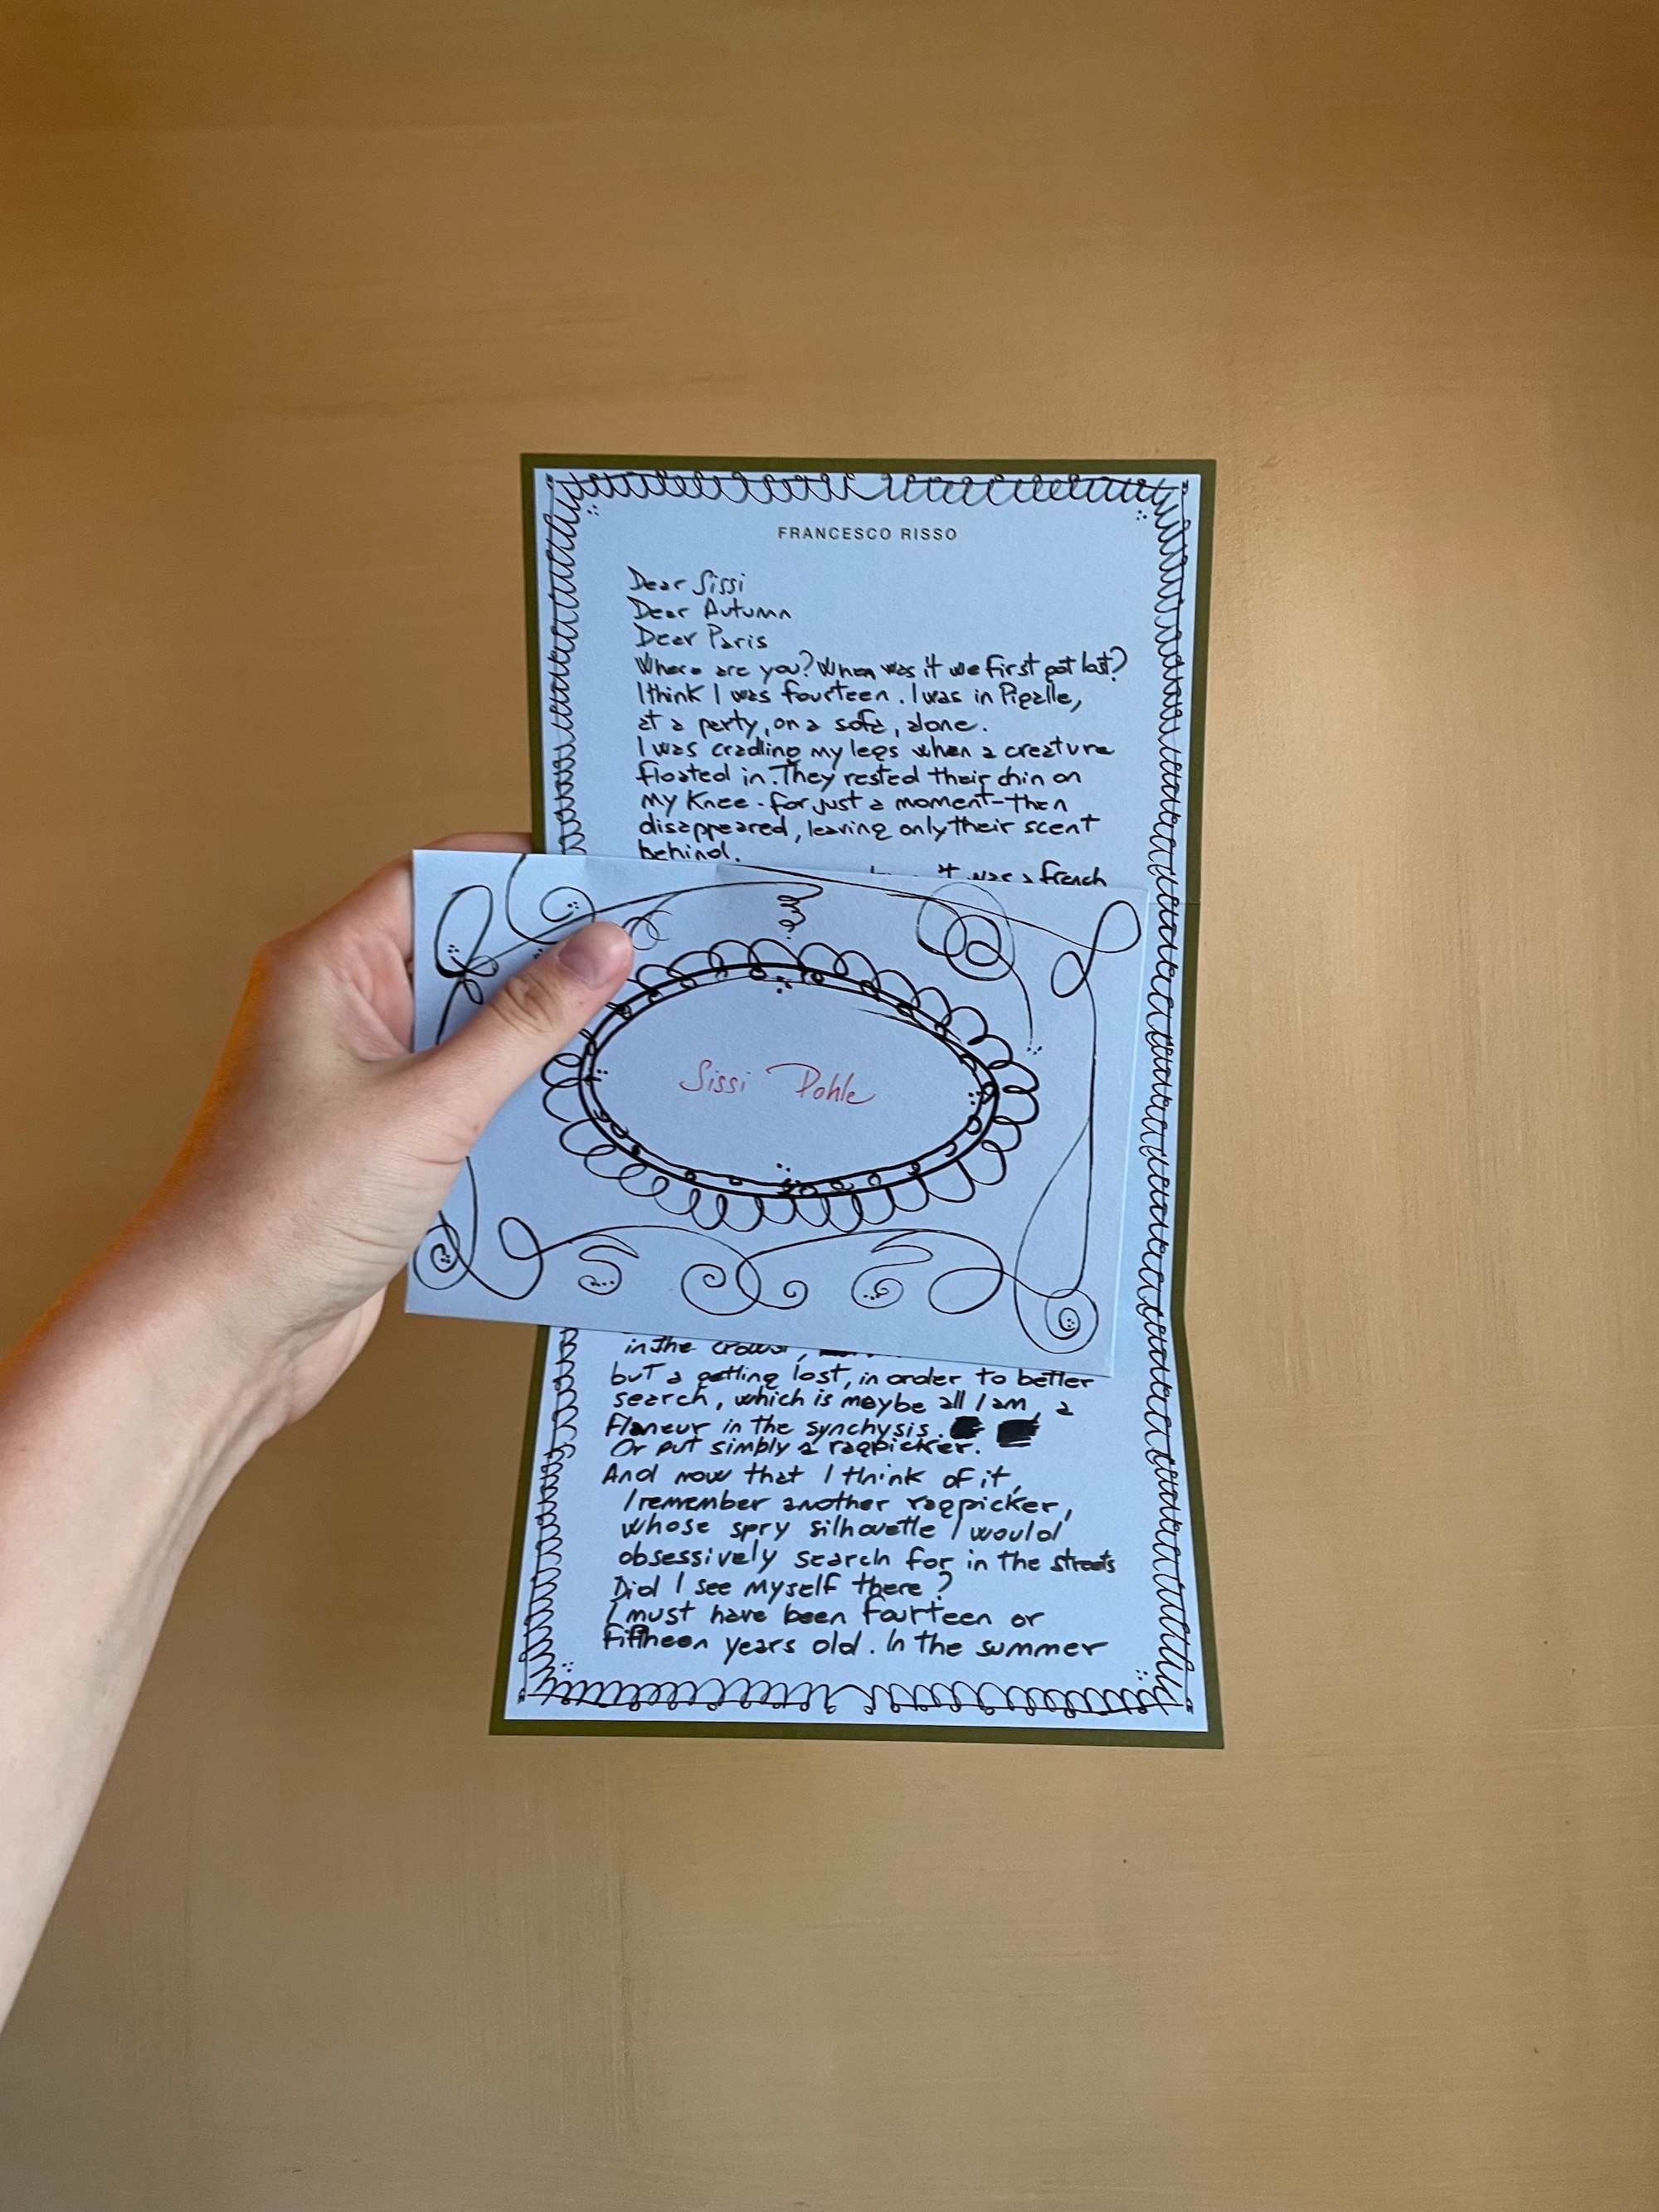 FRANCESCO RISSO
Dear Sissi
Dear Autumn
Dear Paris
Where are you? When was it we first got lost?
I think I was fourteen. I was in Pigalle,
at a party, on a sofa, alone.
I was cradling my legs when a creature
floated in. They rested their chin on
my knee - for just a moment - then
disappeared, leaving only their scent
behind.
it was a french
Sissi Pohle
in the crowd,
but a getting lost, in order to better
search, which is maybe all I am, a
flaneur in the synchysis.
Or put simply a ragpicker.
And now that I think of it,
I remember another ragpicker,
whose spry silhouette I would
obsessively search for in the streets
Did I see myself there?
I must have been fourteen or
fiftheen years old. In the summer